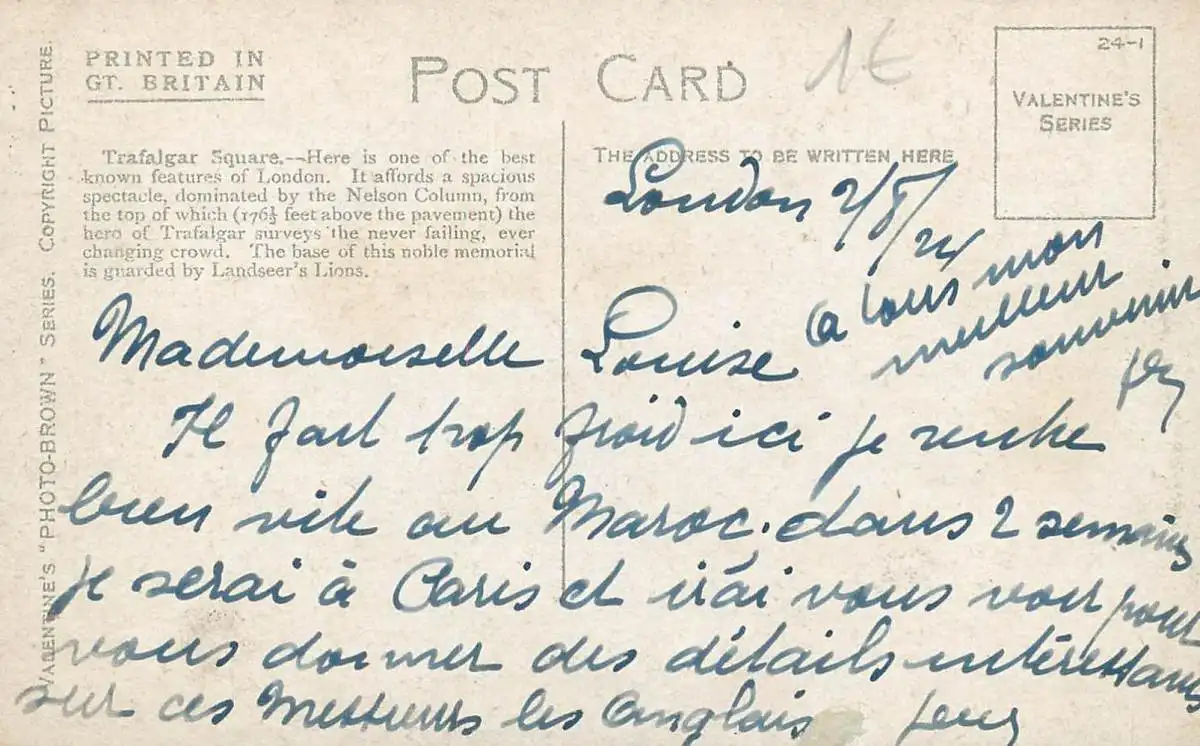 PRINTED IN
GT. BRITAIN
POST CARD
1€
24-1
VALENTINE'S
SERIES
VALENTINE'S "PHOTO-BROWN" SERIES. COPYRIGHT PICTURE.
Trafalgar Square.--Here is one of the best
known features of London. It affords a spacious
spectacle, dominated by the Nelson Column, from
the top of which (176½ feet above the pavement) the
hero of Trafalgar surveys the never failing, ever
changing crowd. The base of this noble memorial
is guarded by Landseer's Lions.
THE ADDRESS TO BE WRITTEN HERE
London 2/8/24
Mademoiselle Louise
Il fait trop froid ici je rentre
bien vite au Maroc. dans 2 semaines
je serai à Paris et irai vous voir pour
vous donner des détails intéressants
sur ces Messieurs les Anglais
a tous mon
meilleur
souvenir